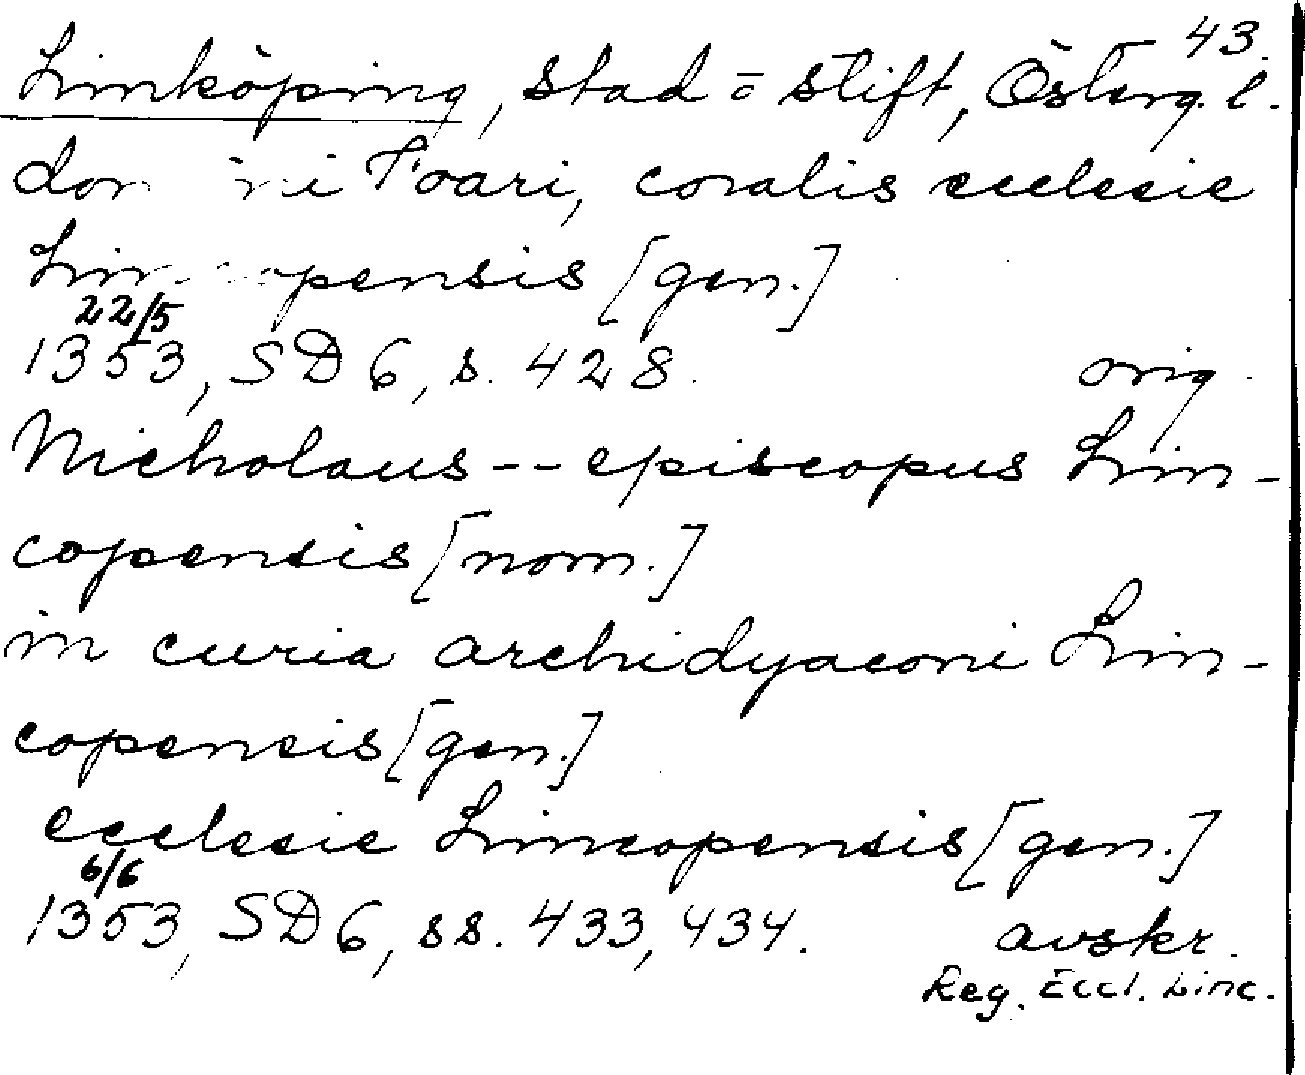 43.
Linköping, stad o stift, Österg. l.
Ioari, coralis ecclesie
Lincopensis [gen.]
22/5
1353, SD 6, s. 428. orig.
Nicholaus -- episcopus Lin-
copensis [nom.]
in curia archidyaconi Lin-
copensis [gen.]
ecclesie Lincopensis [gen.]
6/6
1353, SD 6, ss. 433, 434. avskr.
Reg. Eccl. Linc.